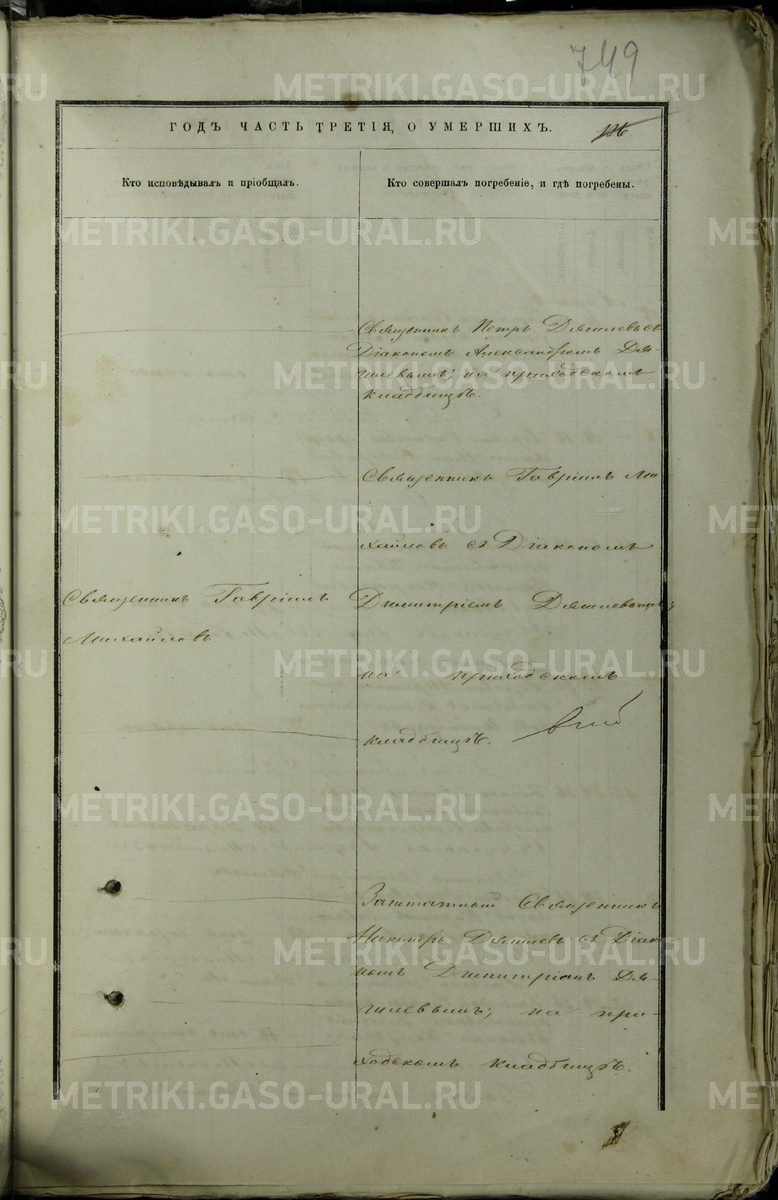 749
ГОДЪ ЧАСТЬ ТРЕТІЯ, О УМЕРШИХЪ.
126
Кто исповѣдывалъ и пріобщалъ.
Кто совершалъ погребеніе, и гдѣ погребены.
Священникъ Петръ Дягилевъ съ
Діакономъ Александромъ Дя-
гилевымъ; на приходскомъ
кладбищѣ.
Священникъ Гавріилъ Ми
хайловъ съ Діакономъ
Священникъ Гавріилъ
Михайловъ
Димитріемъ Дягилевымъ;
на приходскомъ
кладбищѣ.
Заштатный Священникъ
Никандръ Дягилевъ съ Діако
номъ Димитріемъ Дя-
гилевымъ; на при-
ходскомъ кладбищѣ.
METRIKI.GASO-URAL.RU